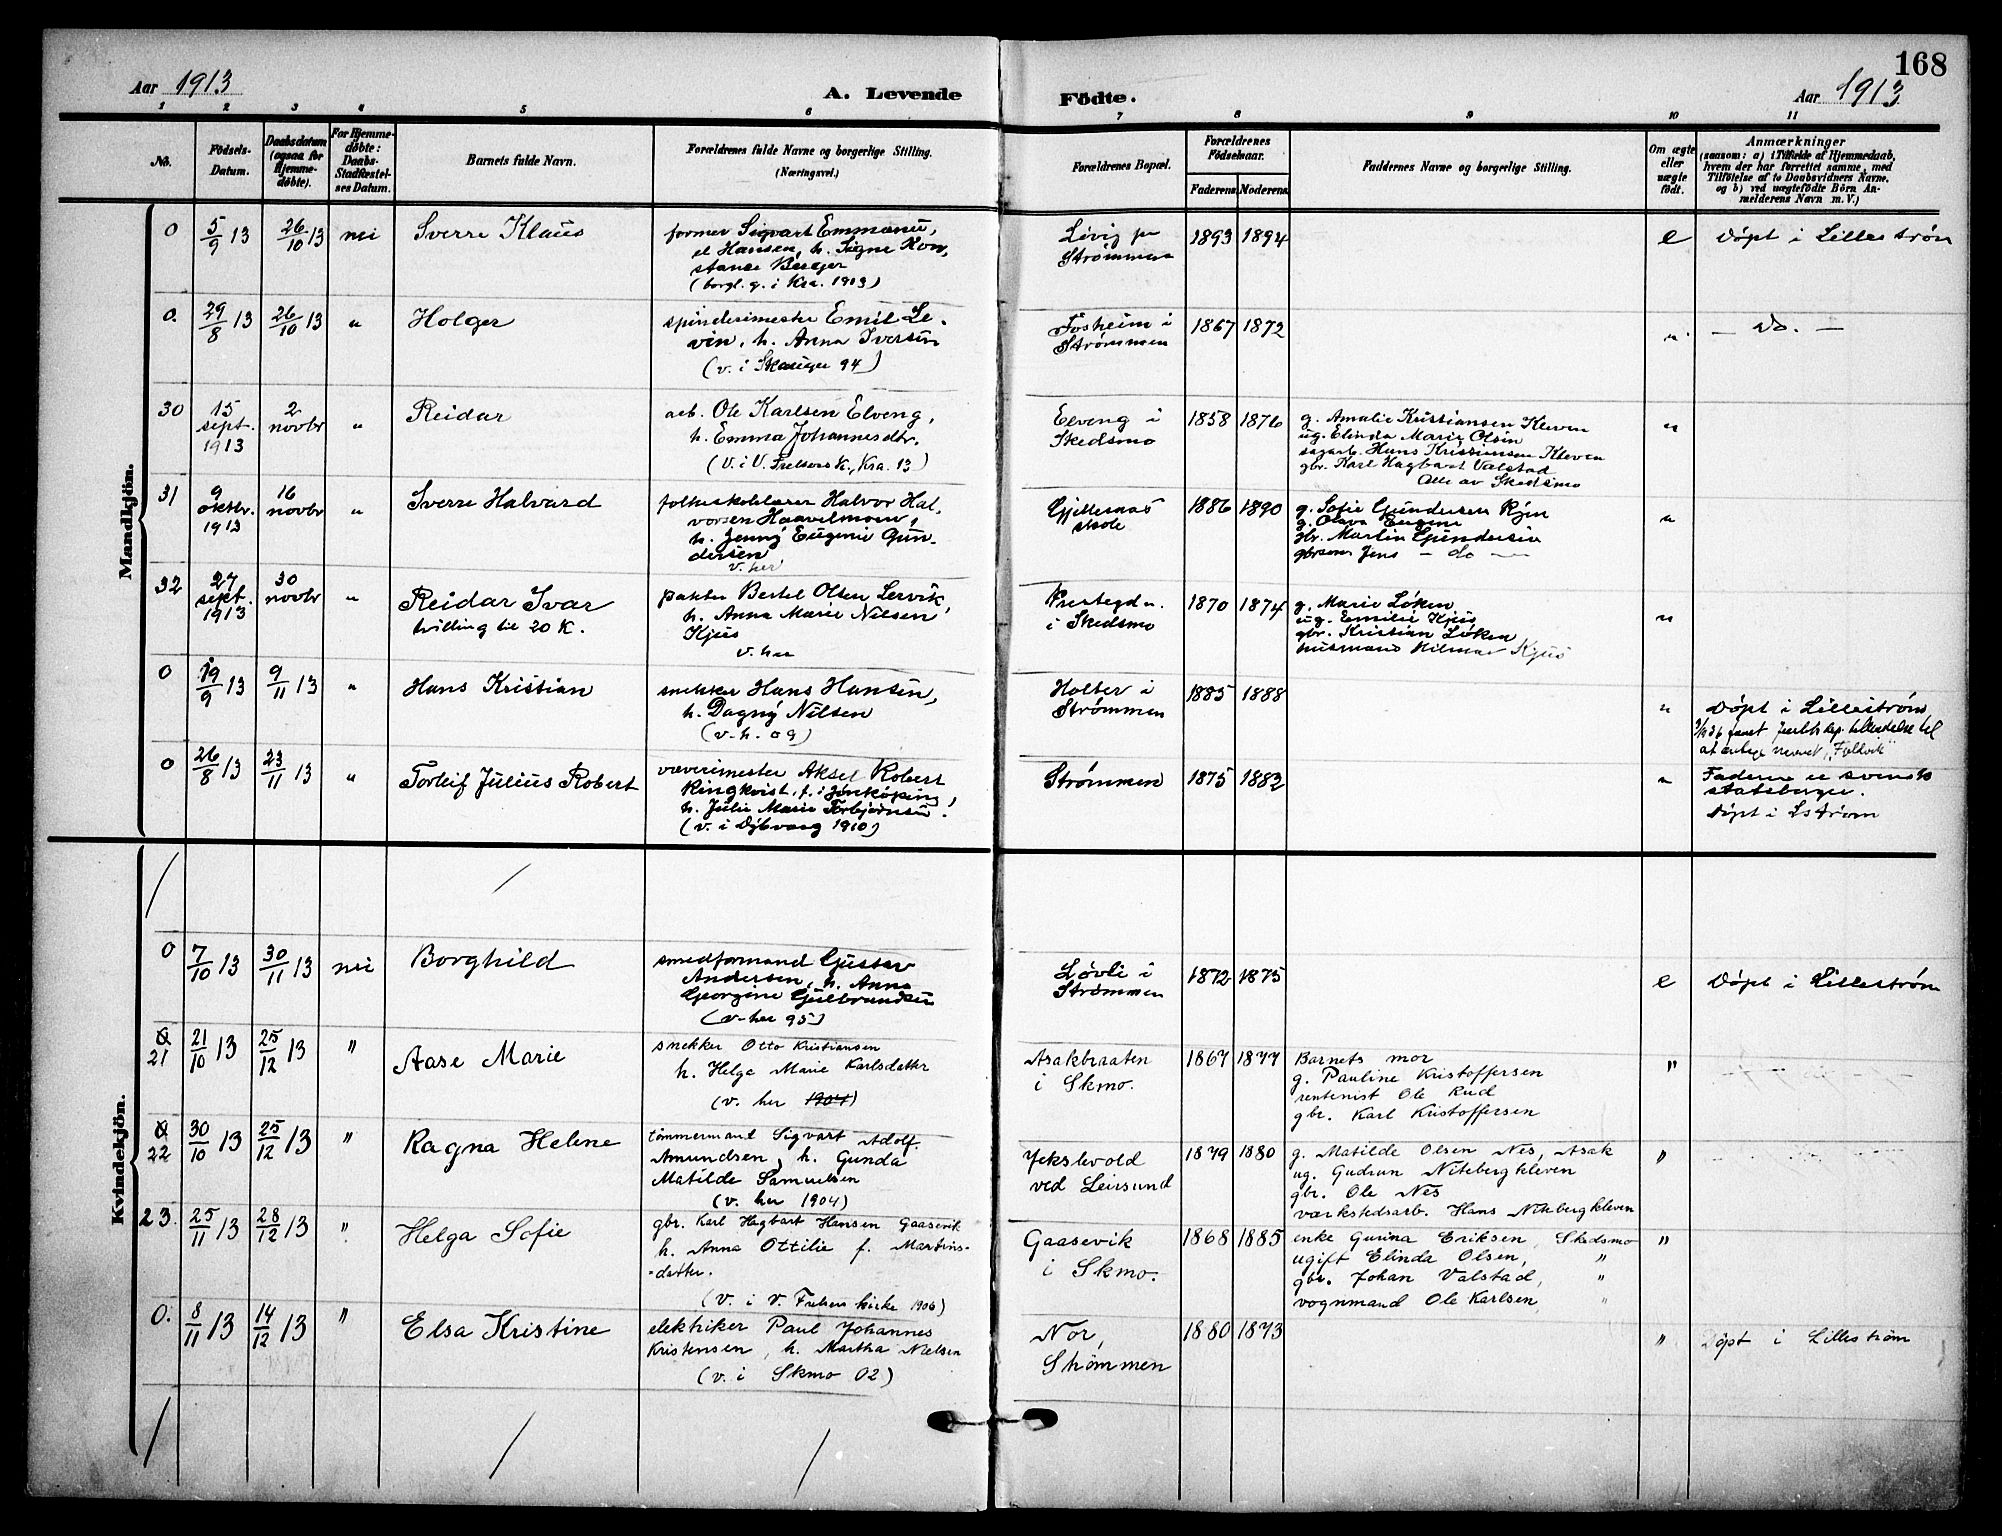 168
Aar 1913
A. Levende
Födte.
Aar 1913
1 2 3 4 5 6 7 8 9 10 11
No.
Födsels-
Datum.
Daabsdatum
(ogsaa for
Hjemme-
døbte).
For Hjemme-
døbte:
Daabs-
Stadfæstel-
ses Datum.
Barnets fulde Navn.
Forældrenes fulde Navne og borgerlige Stilling.
(Næringsvei.)
Forældrenes Bopæl.
Forældrenes
Födselsaar.
Faderens
Moderens
Faddernes Navne og borgerlige Stilling.
Om ægte
eller
uægte
födt.
Anmærkninger
(saasom: a) i Tilfælde af Hjemmedaab,
hvem der har forrettet samme, med
Tilföielse af to Daabsvidners Navne,
og b) ved uægtefödte Börn An-
melderens Navn m. V.)
Mandkjön.
0 5/9 13 26/10 13 nei Sverre Klaus
former Sigvart Emmanu,
el Hansen, h. Signe Kon,
stance Berger
(borgl. g. i Kra. 1913)
Løvig pr
Strømmen
1893 1894 e Døpt i Lillestrøm
0. 29/8 13 26/10 13 " Holger
spinderimester Emil Le-
vin, h. Anna Iversen
(v. i Skauger 94)
Fosheim i
Strømmen
1867 1872 " — Do. —
30 15
sept.
1913
2
novbr " Reidar
arb. Ole Karlsen Elveng,
h. Emma Johannesdtr.
(V. i V. Frelsers K., Kra. 13)
Elveng i
Skedsmo
1858 1876
g. Amalie Kristiansen Kleven
ug. Elinda Marie Olsen
sagarb. Hans Kristiansen Kleven
gbr. Karl Hagbart Valstad
Alle av Skedsmo
"
31 9
oktbr.
1913
16
novbr " Sverre Halvard
folkeskolelærer Halvor Hal,
vorsen Haavelmoen,
h. Jenny Eugenie Gun-
dersen
v. her
Gjellesaas
skole
1886 1890
g. Sofie Gundersen Ryen
g. Olava Eugene
gbr. Martin Gundersen
gbrsøn Jens — do —
"
32 27
sept.
1913
30
novbr " Reidar Ivar
tvilling til 20 K.
pakter Bertel Olsen Lervik,
h. Anna Marie Nilsen
Kjus
v. her
Prestegd.
i Skedsmo
1870 1874
g. Marie Løken
ug. Emilie Kjus
gbr. Kristian Løken
husmand Hilmar Kjus
"
0 19/9 13 9/11 13 " Hans Kristian
snekker Hans Hansen,
h. Dagny Nilsen
(v. h. 09)
Holter i
Strømmen
1885 1888 " Døpt i Lillestrøm
tilladelse til
at antage navnet
0 26/8 13 23/11 13 " Torleif Julius Robert
væverimester Aksel Robert
Ringkvist, f. i Jønkøping,
h. Julie Marie Torbjørnsen.
(v. i Dybvaag 1910)
Strømmen
1875 1882 " Faderne er svensk
statsborger.
Døpt i Lstrøm
Kvindekjön.
0 7/10 13 30/11 13 nei Borghild
smedformand Gustav
Andersen, h. Anna
Georgine Gulbrandsen
(v. her 95)
Løvli i
Strømmen
1872 1875 e Døpt i Lillestrøm
0
21 21/10 13 25/12 13 " Aase Marie
snekker Otto Kristiansen
h. Helga Marie Karlsdatter
(v. her 1904)
Asakbraaten
i Skmo.
1867 1877
Barnets mor
g. Pauline Kristoffersen
rentenist Ole Rud
gbr. Karl Kristoffersen
"
0
22 30/10 13 25/12 13 " Ragna Helene
tømmermand Sigvart Adolf
Amundsen, h. Gunda
Matilde Samuelsen
(v. her 1904)
Jekslevold
ved Leirsund
1879 1880
g. Matilde Olsen Nes, Asak
ug. Gudrun Nitebergkleven
gbr. Ole Nes
værkstedsarb. Hans Nitebergkleven
"
23. 25/11 13 28/12 13 " Helga Sofie
gbr. Karl Hagbart Hansen Gaasevik
h. Anna Ottilie f. Martins-
-datter.
(V. i V. Frelsers kirke 1906)
Gaasevik
i Skmo.
1868 1885
enke Gurina Eriksen, Skedsmo
ugift Elinda Olsen, "
gbr. Johan Valstad, "
vognmand Ole Karlsen, "
"
0. 8/11 13 14/12 13 " Elsa Kristine
elektriker Paul Johannes
Kristensen, h. Martha Nielsen
(v. i Skmo 02)
Nor,
Strømmen
1880 1873 " Døpt i Lillestrøm